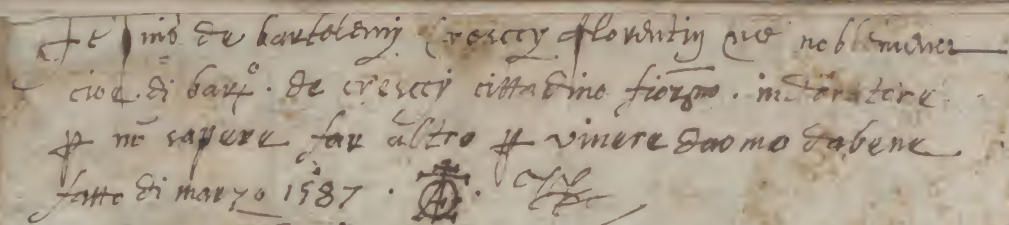 de bartolemy crescey florentin
cioe di bar.o de crescey cittadino fior.no indoratore
p nō sapere far altro p vivere da omo dabene
fatto di marzo 1587